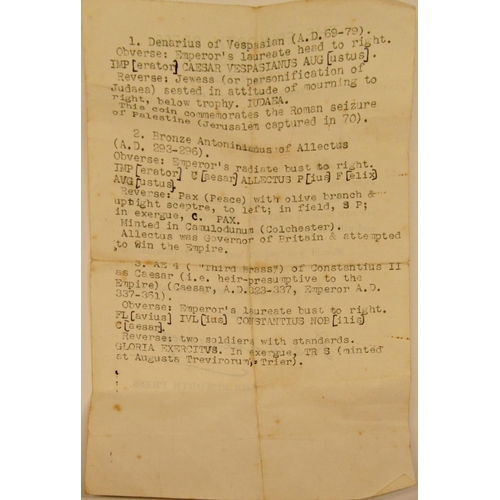 1. Denarius of Vespasian (A.D. 69-79).
Obverse: Emperor's laureate head to right.
IMP[erator] CAESAR VESPASIANUS AUG[ustus].
Reverse: Jewess (or personification of
Judaea) seated in attitude of mourning to
right, below trophy. IUDAEA.
This coin commemorates the Roman seizure
of Palestine (Jerusalem captured in 70).
2. Bronze Antoninianus of Allectus
(A.D. 293-296).
Obverse: Emperor's radiate bust to right.
IMP[erator] C[aesar] ALLECTUS P[ius] F[elix]
AVG[ustus].
Reverse: Pax (Peace) with olive branch &
upright sceptre, to left; in field, S P;
in exergue, C. PAX.
Minted in Camulodunum (Colchester).
Allectus was Governor of Britain & attempted
to win the Empire.
3. AE 4 ( "Third Brass") of Constantius II
as Caesar (i.e. heir-presumptive to the
Empire) (Caesar, A.D.323-337, Emperor A.D.
337-361).
Obverse: Emperor's laureate bust to right.
FL[avius] IVL[ius] CONSTANTIUS NOB[ilis]
C[aesar].
Reverse: two soldiers with standards.
GLORIA EXERCITVS. In exergue, TR S (minted
at Augusta Trevirorum, Trier).